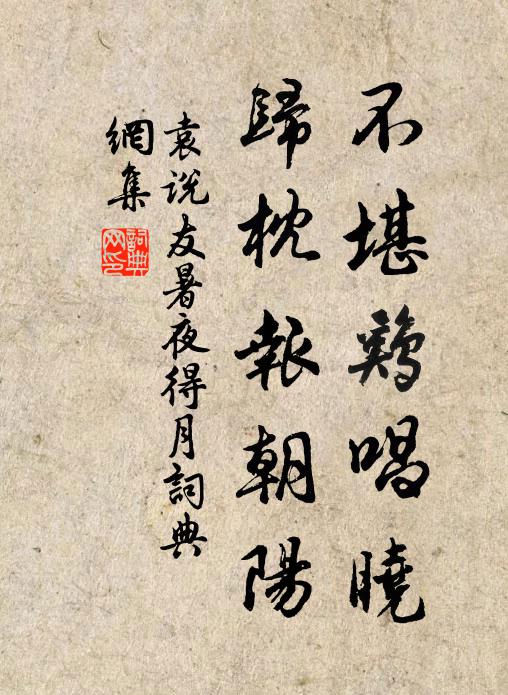 不堪鷄唱曉
歸枕報朝陽
袁説友暑夜得月詞典
網集
詞典
网印